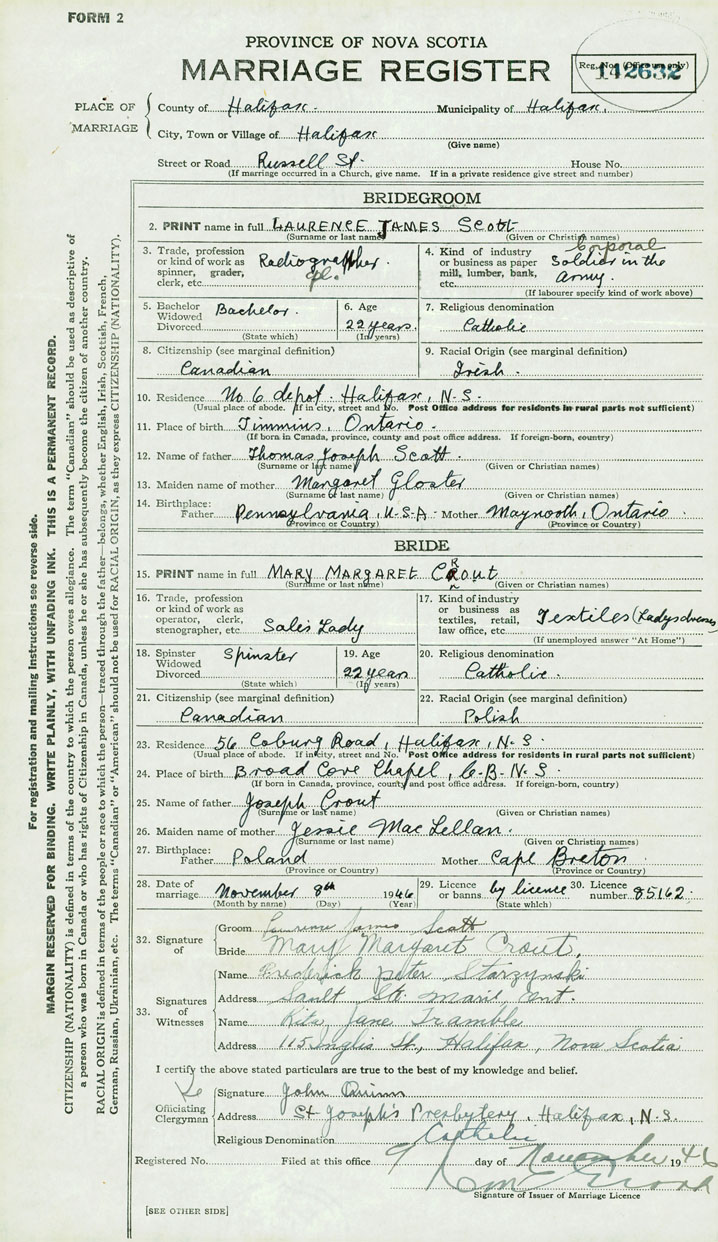 FORM 2
PROVINCE OF NOVA SCOTIA
MARRIAGE REGISTER
Reg. No. (Office use only)
142632
PLACE OF MARRIAGE
County of Halifax. Municipality of Halifax.
City, Town or Village of Halifax
(Give name)
Street or Road Russell St. House No.
(If marriage occurred in a Church, give name. If in a private residence give street and number)
BRIDEGROOM
2. PRINT name in full LAURENCE JAMES Scott
(Surname or last name) (Given or Christian names)
3. Trade, profession or kind of work as spinner, grader, clerk, etc. Radiographer. Cpl.
4. Kind of industry or business as paper mill, lumber, bank, etc. Corporal Soldier in the Army.
(If labourer specify kind of work above)
5. Bachelor Widowed Divorced Bachelor.
(State which)
6. Age 22 years.
(In years)
7. Religious denomination Catholic
8. Citizenship (see marginal definition) Canadian
9. Racial Origin (see marginal definition) Irish.
10. Residence No. 6 depot. Halifax, N.S.
(Usual place of abode. If in city, street and No. Post Office address for residents in rural parts not sufficient)
11. Place of birth Timmins, Ontario.
(If born in Canada, province, county and post office address. If foreign-born, country)
12. Name of father Thomas Joseph Scott.
(Surname or last name) (Given or Christian names)
13. Maiden name of mother Margaret Gloster
(Surname or last name) (Given or Christian names)
14. Birthplace: Father Pennsylvania, U.S.A. Mother Maynooth, Ontario.
(Province or Country) (Province or Country)
BRIDE
15. PRINT name in full MARY MARGARET CROUT
(Surname or last name) (Given or Christian names)
16. Trade, profession or kind of work as operator, clerk, stenographer, etc Sales Lady
17. Kind of industry or business as textiles, retail, law office, etc. Textiles (Ladys dresses
(If unemployed answer "At Home")
18. Spinster Widowed Divorced Spinster
(State which)
19. Age 22 years
(In years)
20. Religious denomination Catholic.
21. Citizenship (see marginal definition) Canadian
22. Racial Origin (see marginal definition) Polish
23. Residence 56 Coburg Road, Halifax, N.S.
(Usual place of abode. If in city, street and No. Post Office address for residents in rural parts not sufficient)
24. Place of birth Broad Cove Chapel, C.B. N.S.
(If born in Canada, province, county and post office address. If foreign-born, country)
25. Name of father Joseph Crout
(Surname or last name) (Given or Christian names)
26. Maiden name of mother Jessie MacLellan.
(Surname or last name) (Given or Christian names)
27. Birthplace: Father Poland Mother Cape Breton
(Province or Country) (Province or Country)
28. Date of marriage November 8th 1946
(Month by name) (Day) (Year)
29. Licence or banns by licence
(State which)
30. Licence number 85162.
32. Signature of
Groom James Scott
Bride Mary Margaret Crout.
33. Signatures of Witnesses
Name Frederick Peter Starzynski
Address Sault Ste. Marie, Ont.
Name Rita Jane Tramble
Address 115 Inglis St., Halifax, Nova Scotia
I certify the above stated particulars are true to the best of my knowledge and belief.
Officiating Clergyman
Signature John Quinn
Address St. Joseph's Presbytery, Halifax, N.S.
Religious Denomination Catholic
Registered No. Filed at this office 9 day of November 1946
Signature of Issuer of Marriage Licence
[SEE OTHER SIDE]
For registration and mailing instructions see reverse side.
MARGIN RESERVED FOR BINDING. WRITE PLAINLY, WITH UNFADING INK. THIS IS A PERMANENT RECORD.
CITIZENSHIP (NATIONALITY) is defined in terms of the country to which the person owes allegiance. The term "Canadian" should be used as descriptive of
a person who was born in Canada or who has rights of Citizenship in Canada, unless he or she has subsequently become the citizen of another country.
RACIAL ORIGIN is defined in terms of the people or race to which the person—traced through the father—belongs, whether English, Irish, Scottish, French,
German, Russian, Ukrainian, etc. The terms "Canadian" or "American" should not be used for RACIAL ORIGIN, as they express CITIZENSHIP (NATIONALITY).